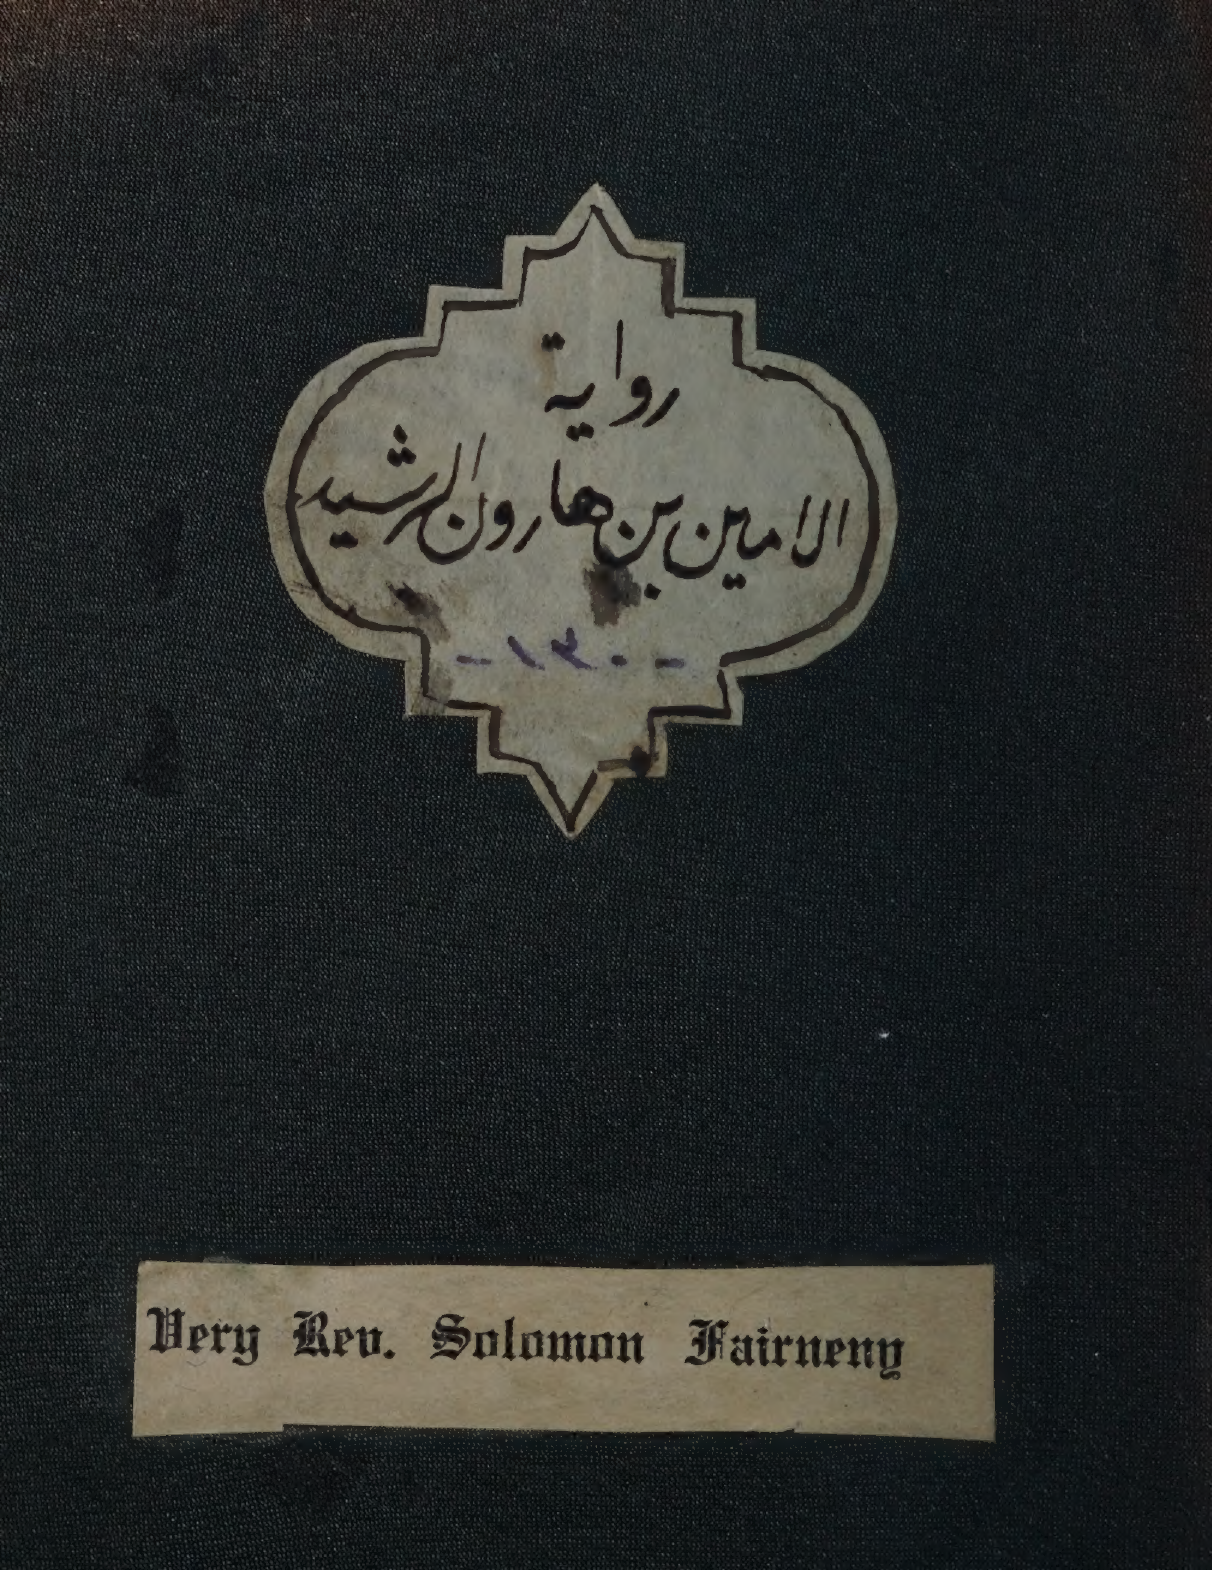 رواية
الامين بن هارون الرشيد
- ١٣٠ -
Very Rev. Solomon Fairneny